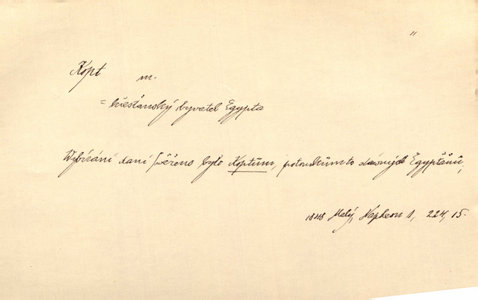 "
Kopt m.
= křesťanský obyvatel Egypta
Vybírání daní svěřeno bylo Koptům, potomkům to dávných Egypťanů,
1848 Malý, Napoleon 1, 224, 15.